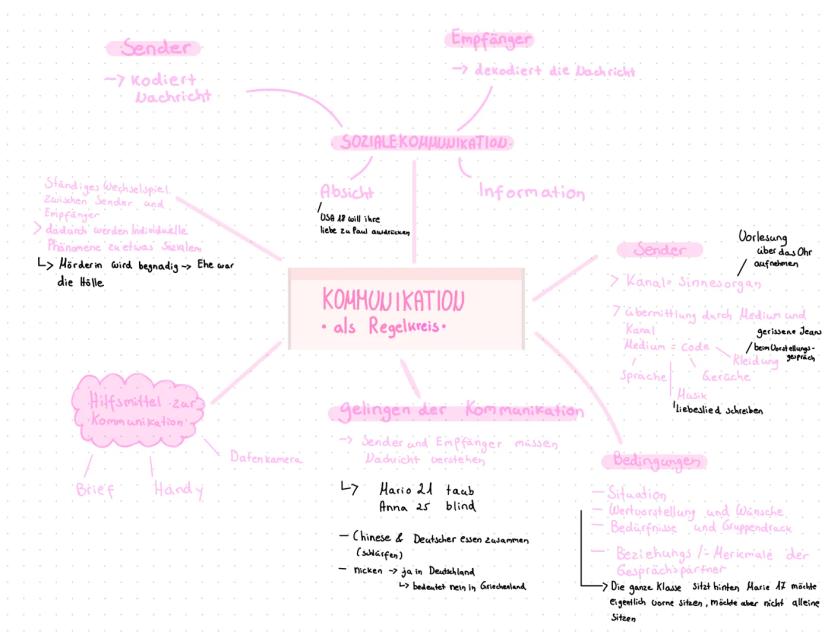 Sender
-> kodiert
Nachricht
Empfänger
-> dekodiert die Nachricht
SOZIALE KOMMUNIKATION
Absicht
Lisa 18 will ihre
liebe zu Paul ausdrücken
Information
Ständiges Wechselspiel
zwischen Sender und
Empfänger
> dadurch werden Individuelle
Phänomene zu etwas Sozialem
↳ Mörderin wird begnadig -> Ehe war
die Hölle
KOMMUNIKATION
• als Regelkreis •
Sender
Vorlesung
über das Ohr
aufnehmen
> Kanal = Sinnesorgan
> übermittlung durch Medium und
Kanal
gerissene Jeans
beim Vorstellungs-
gespräch
Medium = Code
Kleidung
Sprache
Gerüche
Musik
liebeslied schreiben
Hilfsmittel zur
Kommunikation
Brief
Handy
Datenkamera
gelingen der Kommunikation
-> Sender und Empfänger müssen
Nachricht verstehen
↳ Mario 21 taub
Anna 25 blind
- Chinese & Deutscher essen zusammen
(schlürfen)
- nicken -> ja in Deutschland
↳ bedeutet nein in Griechenland
Bedingungen
- Situation
- Wertvorstellung und Wünsche
- Bedürfnisse und Gruppendruck
- Beziehungs /- Merkmale der
Gesprächspartner
> Die ganze Klasse sitzt hinten Marie 17 möchte
eigentlich vorne sitzen, möchte aber nicht alleine
sitzen